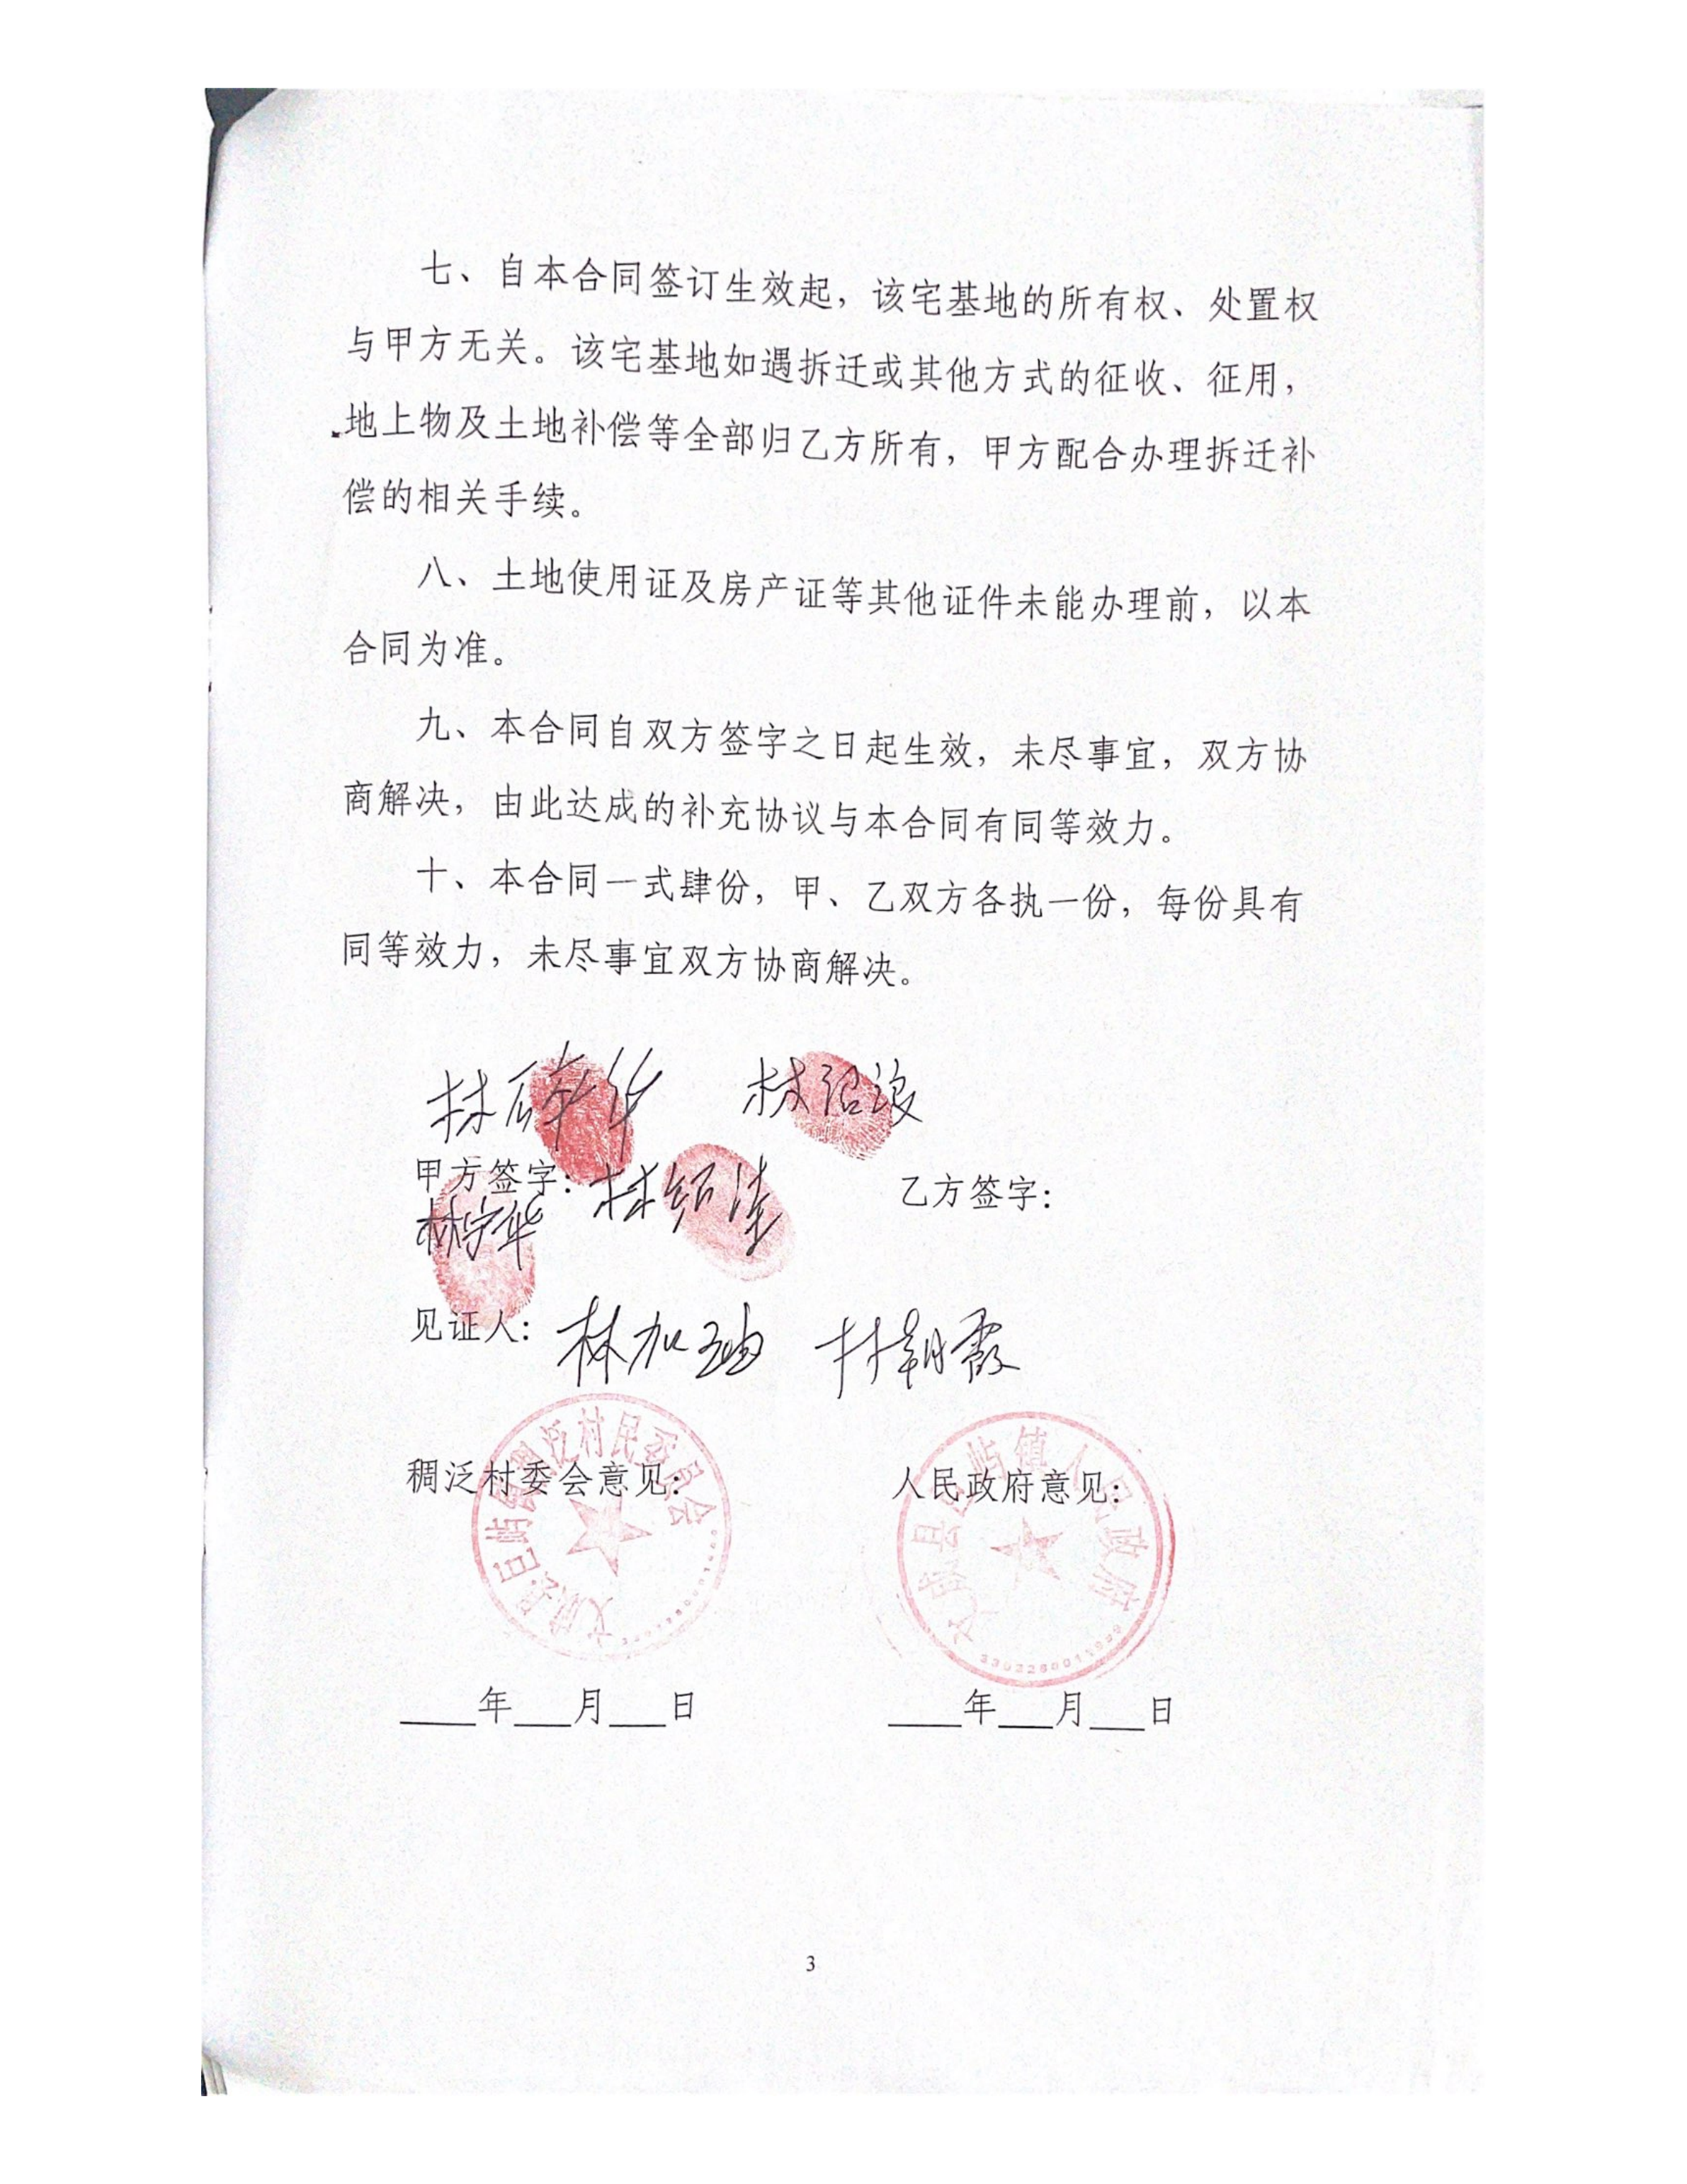 七、自本合同签订生效起，该宅基地的所有权、处置权
与甲方无关。该宅基地如遇拆迁或其他方式的征收、征用，
地上物及土地补偿等全部归乙方所有，甲方配合办理拆迁补
偿的相关手续。
八、土地使用证及房产证等其他证件未能办理前，以本
合同为准。
九、本合同自双方签字之日起生效，未尽事宜，双方协
商解决，由此达成的补充协议与本合同有同等效力。
十、本合同一式肆份，甲、乙双方各执一份，每份具有
同等效力，未尽事宜双方协商解决。
林碎华 林绍
甲方签字：林绍 乙方签字：
林守华
见证人：林加迪 林朝霞
稠泛村委会意见： 人民政府意见：
文成县巨屿镇稠泛村民委员会
文成县巨屿镇人民政府
____年___月___日 ____年___月___日
3